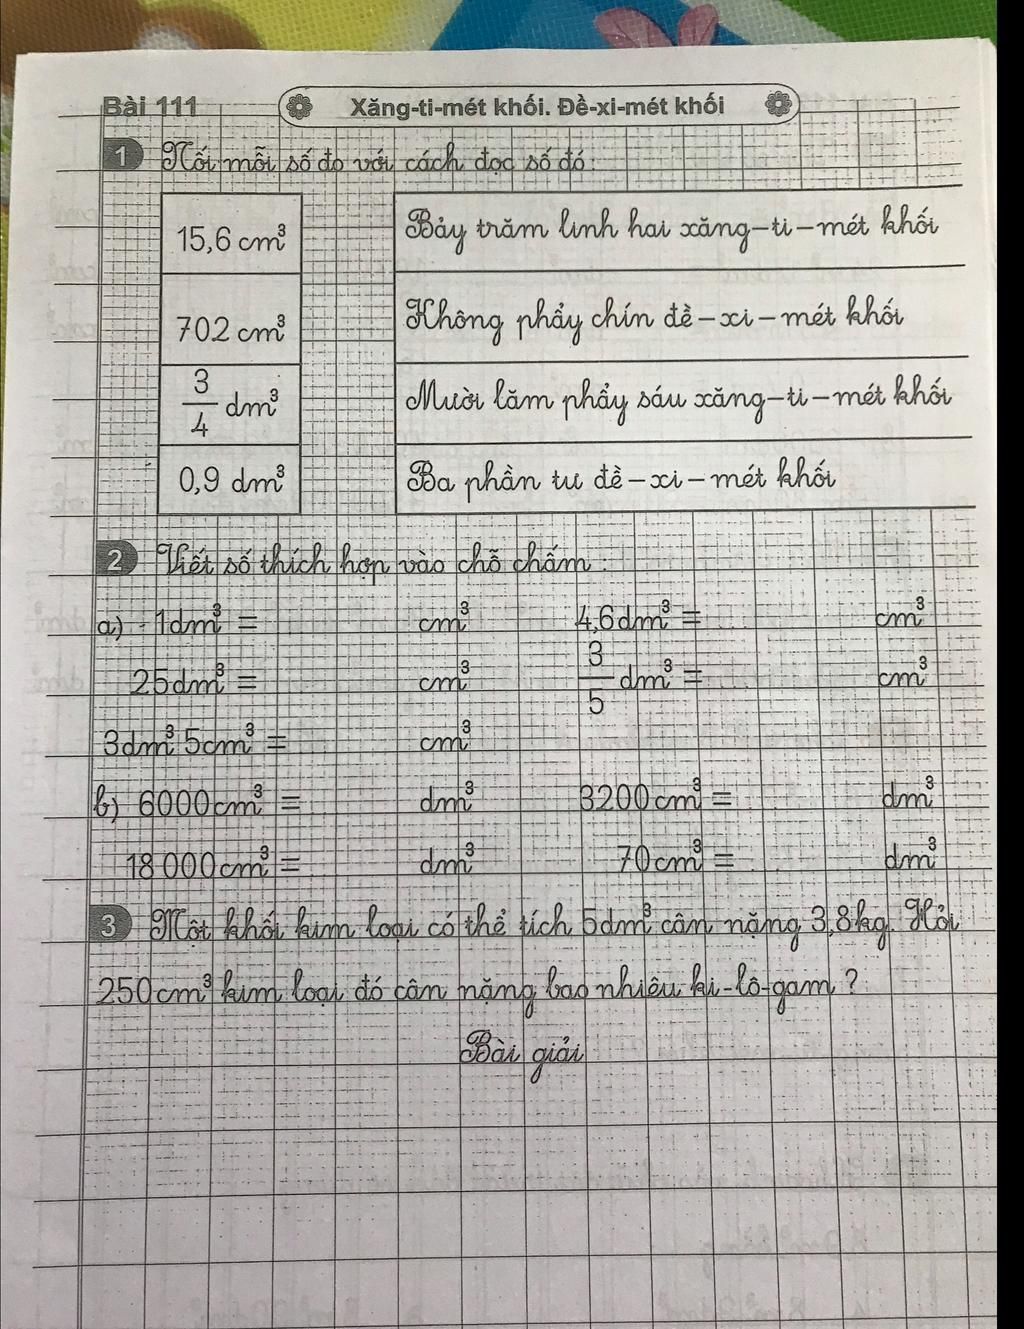 Bài 111 Xăng-ti-mét khối. Đề-xi-mét khối
1 Nối mỗi số đo với cách đọc số đó:
15,6 cm³ Bảy trăm linh hai xăng-ti-mét khối
702 cm³ Không phẩy chín đề-xi-mét khối
3/4 dm³ Mười lăm phẩy sáu xăng-ti-mét khối
0,9 dm³ Ba phần tư đề-xi-mét khối
2 Viết số thích hợp vào chỗ chấm.
a) 1dm³ = cm³ 4,6dm³ = cm³
25dm³ = cm³ 3/5 dm³ = cm³
3dm³ 5cm³ = cm³
b) 6000cm³ = dm³ 3200cm³ = dm³
18 000cm³ = dm³ 70cm³ = dm³
3 Một khối kim loại có thể tích 5dm³ cân nặng 3,8kg. Hỏi
250cm³ kim loại đó cân nặng bao nhiêu ki-lô-gam?
Bài giải